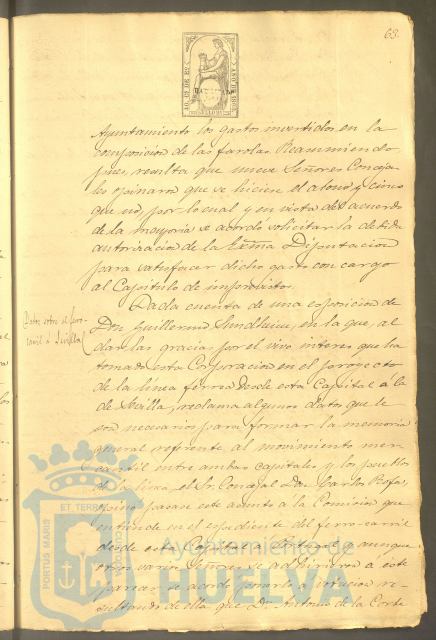 63.
Ayuntamiento los gastos invertidos en la
composicion de las farolas. Reasumiendo
pues, resulta que nueve Señores Conceja-
les opinaron que se hiciese el abono y cinco
que no, por lo cual y en vista del acuerdo
de la mayoria se acordo solicitar la debida
autorizacion de la Exma Diputacion
para satisfacer dicho gasto con cargo
al Capitulo de imprevistos.
Dada cuenta de una esposicion de
Datos sobre el ferro-
carril á Sevilla
Don Guillermo Sundheim, en la que, al
dar las gracias por el vivo interes que ha
tomado esta Corporacion en el proyecto
de la linea ferrea desde esta Capital á la
de Sevilla, reclama algunos datos que le
son necesarios para formar la memoria
general referente al movimiento mer-
cantil entre ambas capitales y los pueblos
de la linea, el Sr. Concejal Don Carlos
opino pasase este asunto á la Comision que
entiende en el espediente del ferro-carril
desde esta Capital á aunque
otros varios Señores se adhirieron á este
parecer se acordo ponerlo á votacion re-
sultando de ella que Dn. Antonio de la Corte
PORTUS MARIS ET TERRAE CUSTODIA
Ayuntamiento de
HUELVA